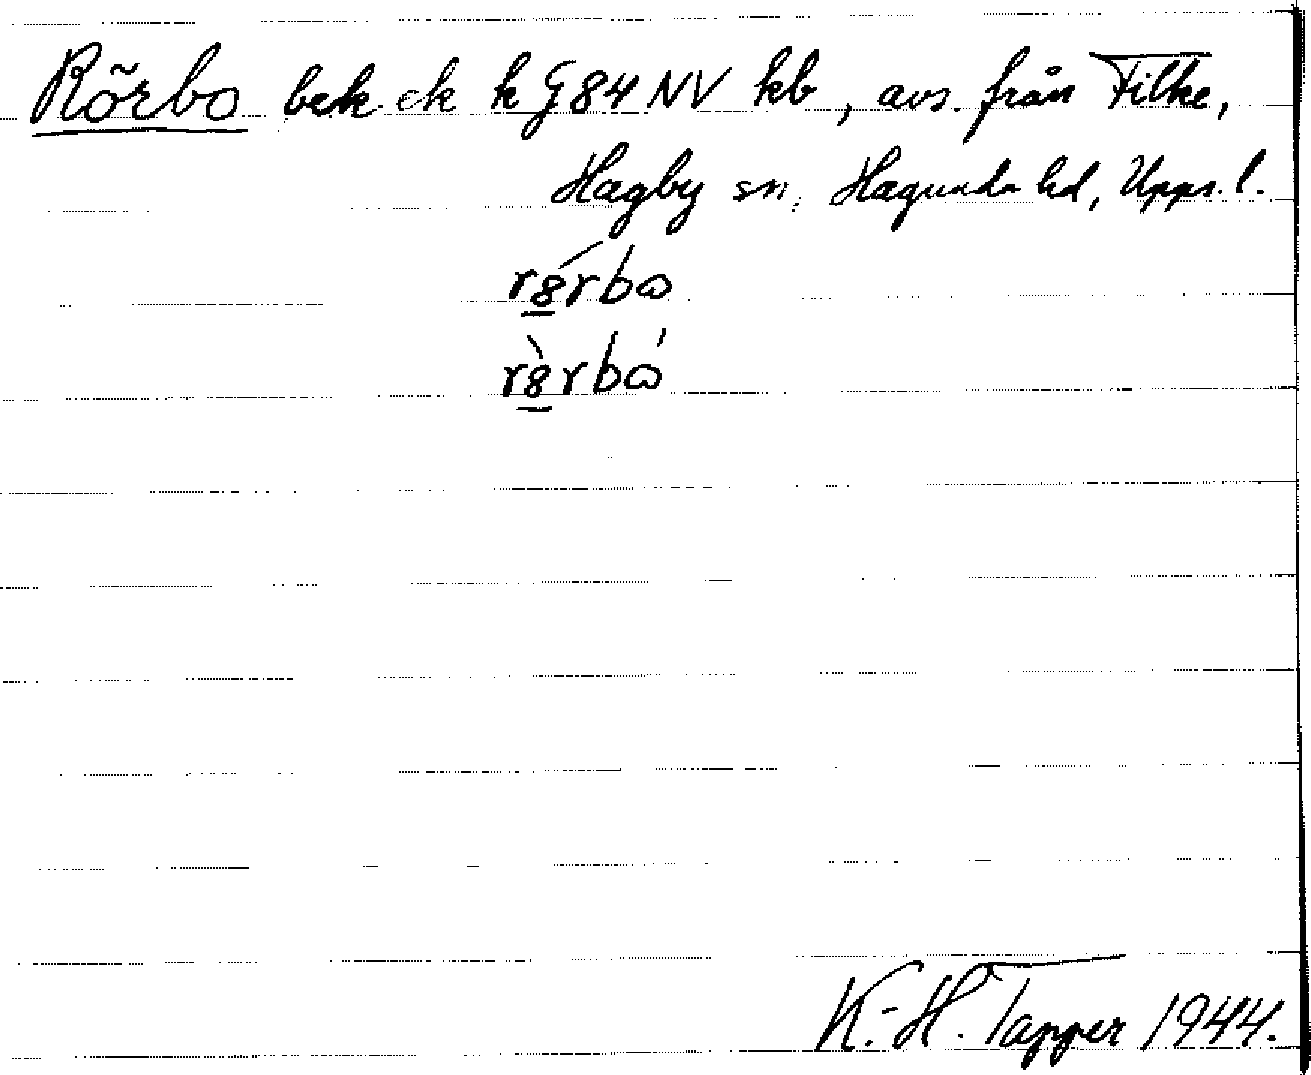 Rörbo bek. ek k G 84 NV kb, avs. från Filke,
Hagby sn, Hagunda hd, Upps. l.
K.-H. Tapper 1944.